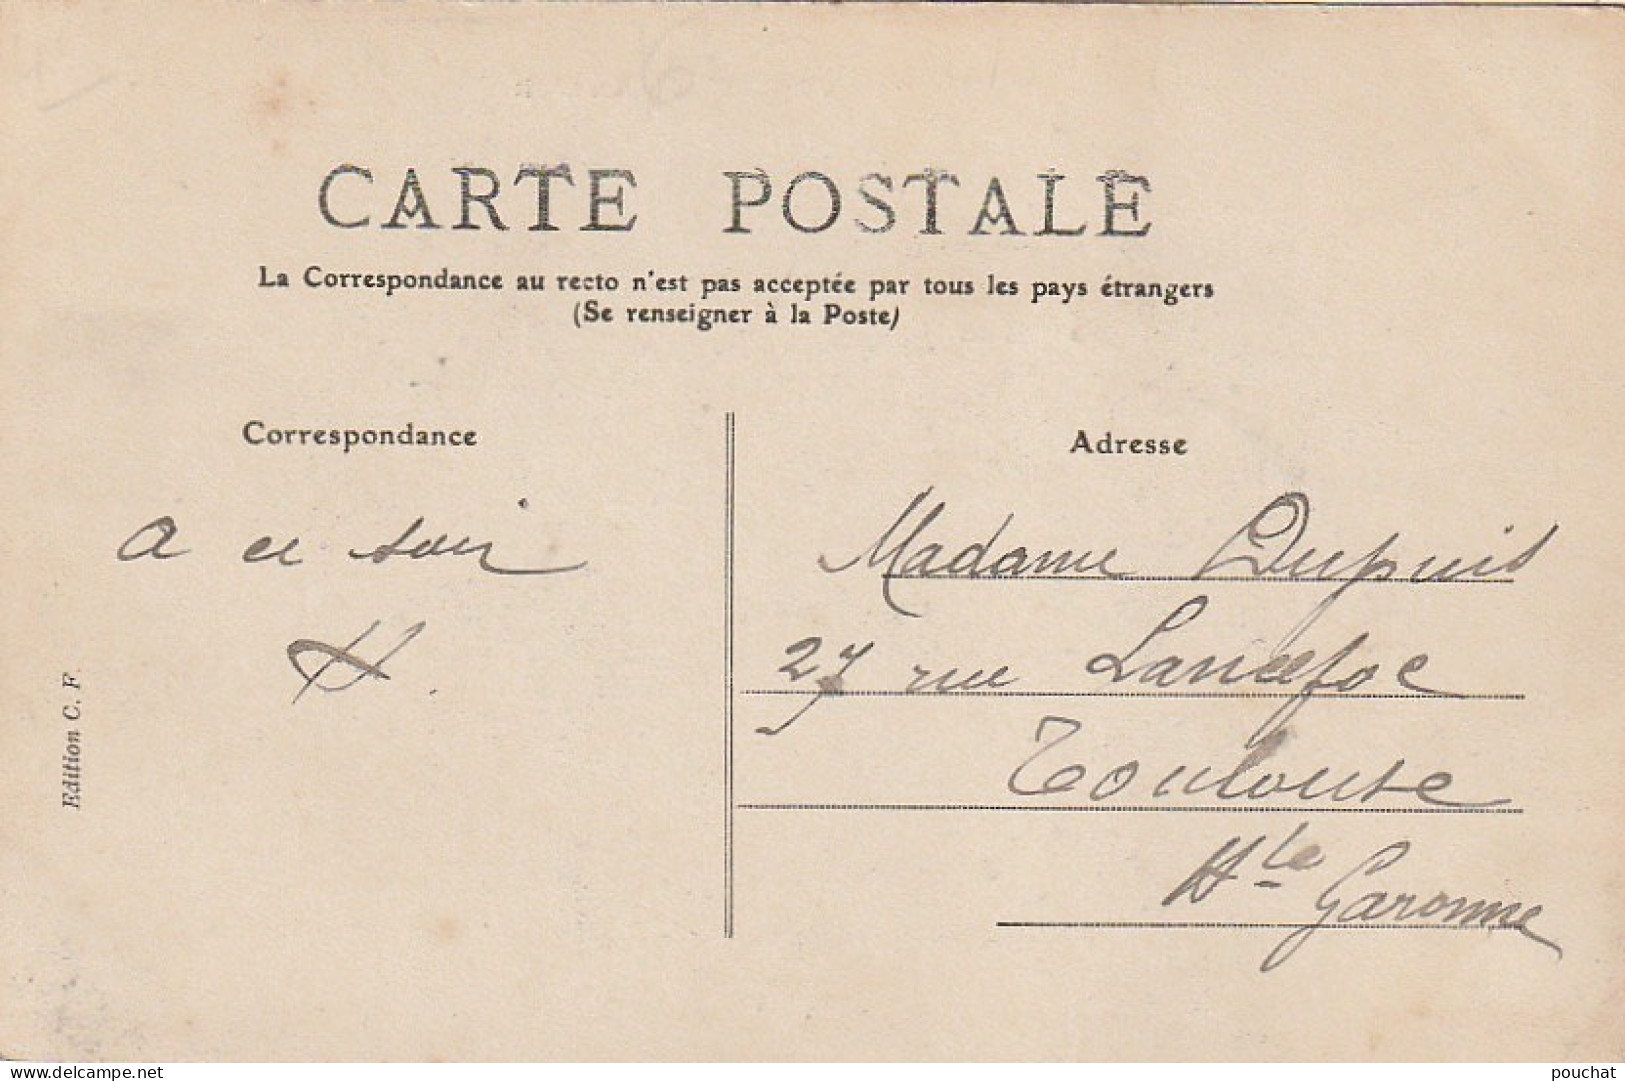 CARTE POSTALE
La Correspondance au recto n'est pas acceptée par tous les pays étrangers
(Se renseigner à la Poste)
Correspondance
a ce soir
H.
Edition C. F.
Adresse
Madame Dupuis
27 rue Lancefoc
Toulouse
Hte Garonne
www.delcampe.net
pouchat